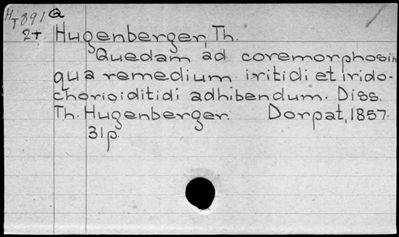 H/T891 Q
2+ Hugenberger, Th.
Quedam ad coremorphosin
qua remedium iritidi et irido-
chorioiditidi adhibendum. Diss.
Th. Hugenberger. Dorpat, 1857.
31p.